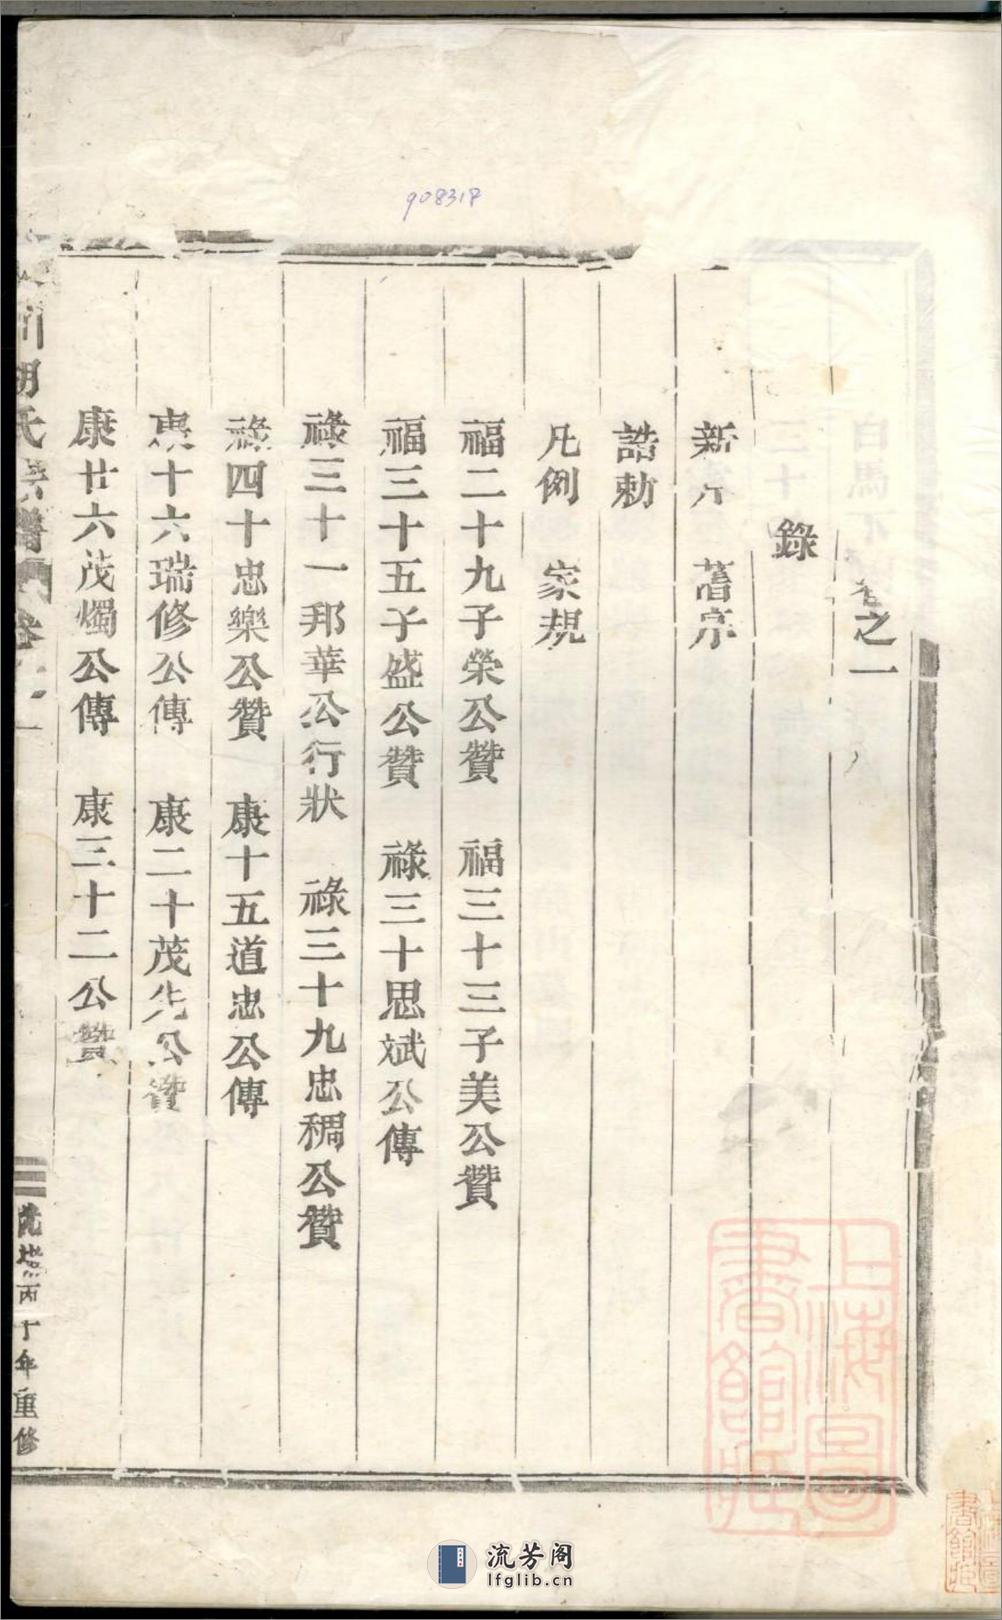 908318
卷之一
錄
新序 舊序
誥勅
凡例 家規
福二十九子榮公贊 福三十三子美公贊
福三十五子盛公贊 祿三十思斌公傳
祿三十一邦華公行狀 祿三十九忠稠公贊
祿四十忠樂公贊 康十五道忠公傳
康十六瑞修公傳 康二十茂先公贊
康廿六茂燭公傳 康三十二公贊
川胡氏宗譜 卷之一
光緒丙子年重修
上海圖書館藏
流芳阁
lfglib.cn